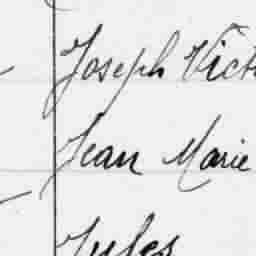 Joseph Vict
Jean Marie
Jules